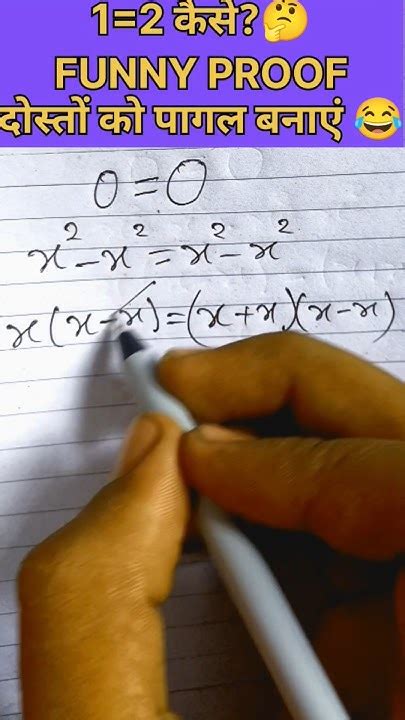 1=2 कैसे?🤔
FUNNY PROOF
दोस्तों को पागल बनाएं 😂
0=0
x²-x²=x²-x²
x(x-x)=(x+x)(x-x)